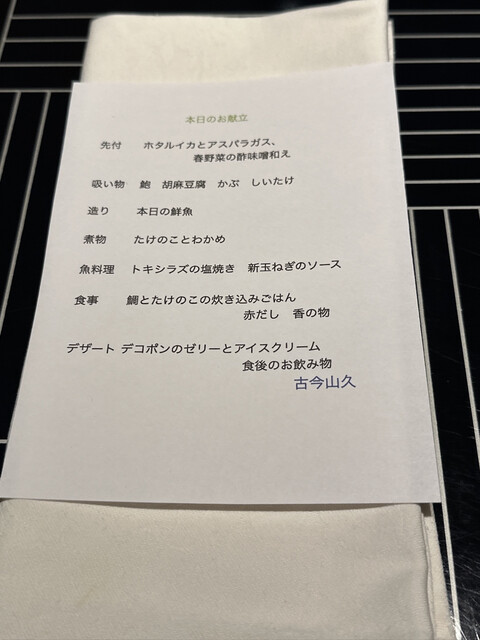 本日のお献立
先付　ホタルイカとアスパラガス、
春野菜の酢味噌和え
吸い物　鮑　胡麻豆腐　かぶ　しいたけ
造り　本日の鮮魚
煮物　たけのことわかめ
魚料理　トキシラズの塩焼き　新玉ねぎのソース
食事　鯛とたけのこの炊き込みごはん
赤だし　香の物
デザート デコポンのゼリーとアイスクリーム
食後のお飲み物
古今山久